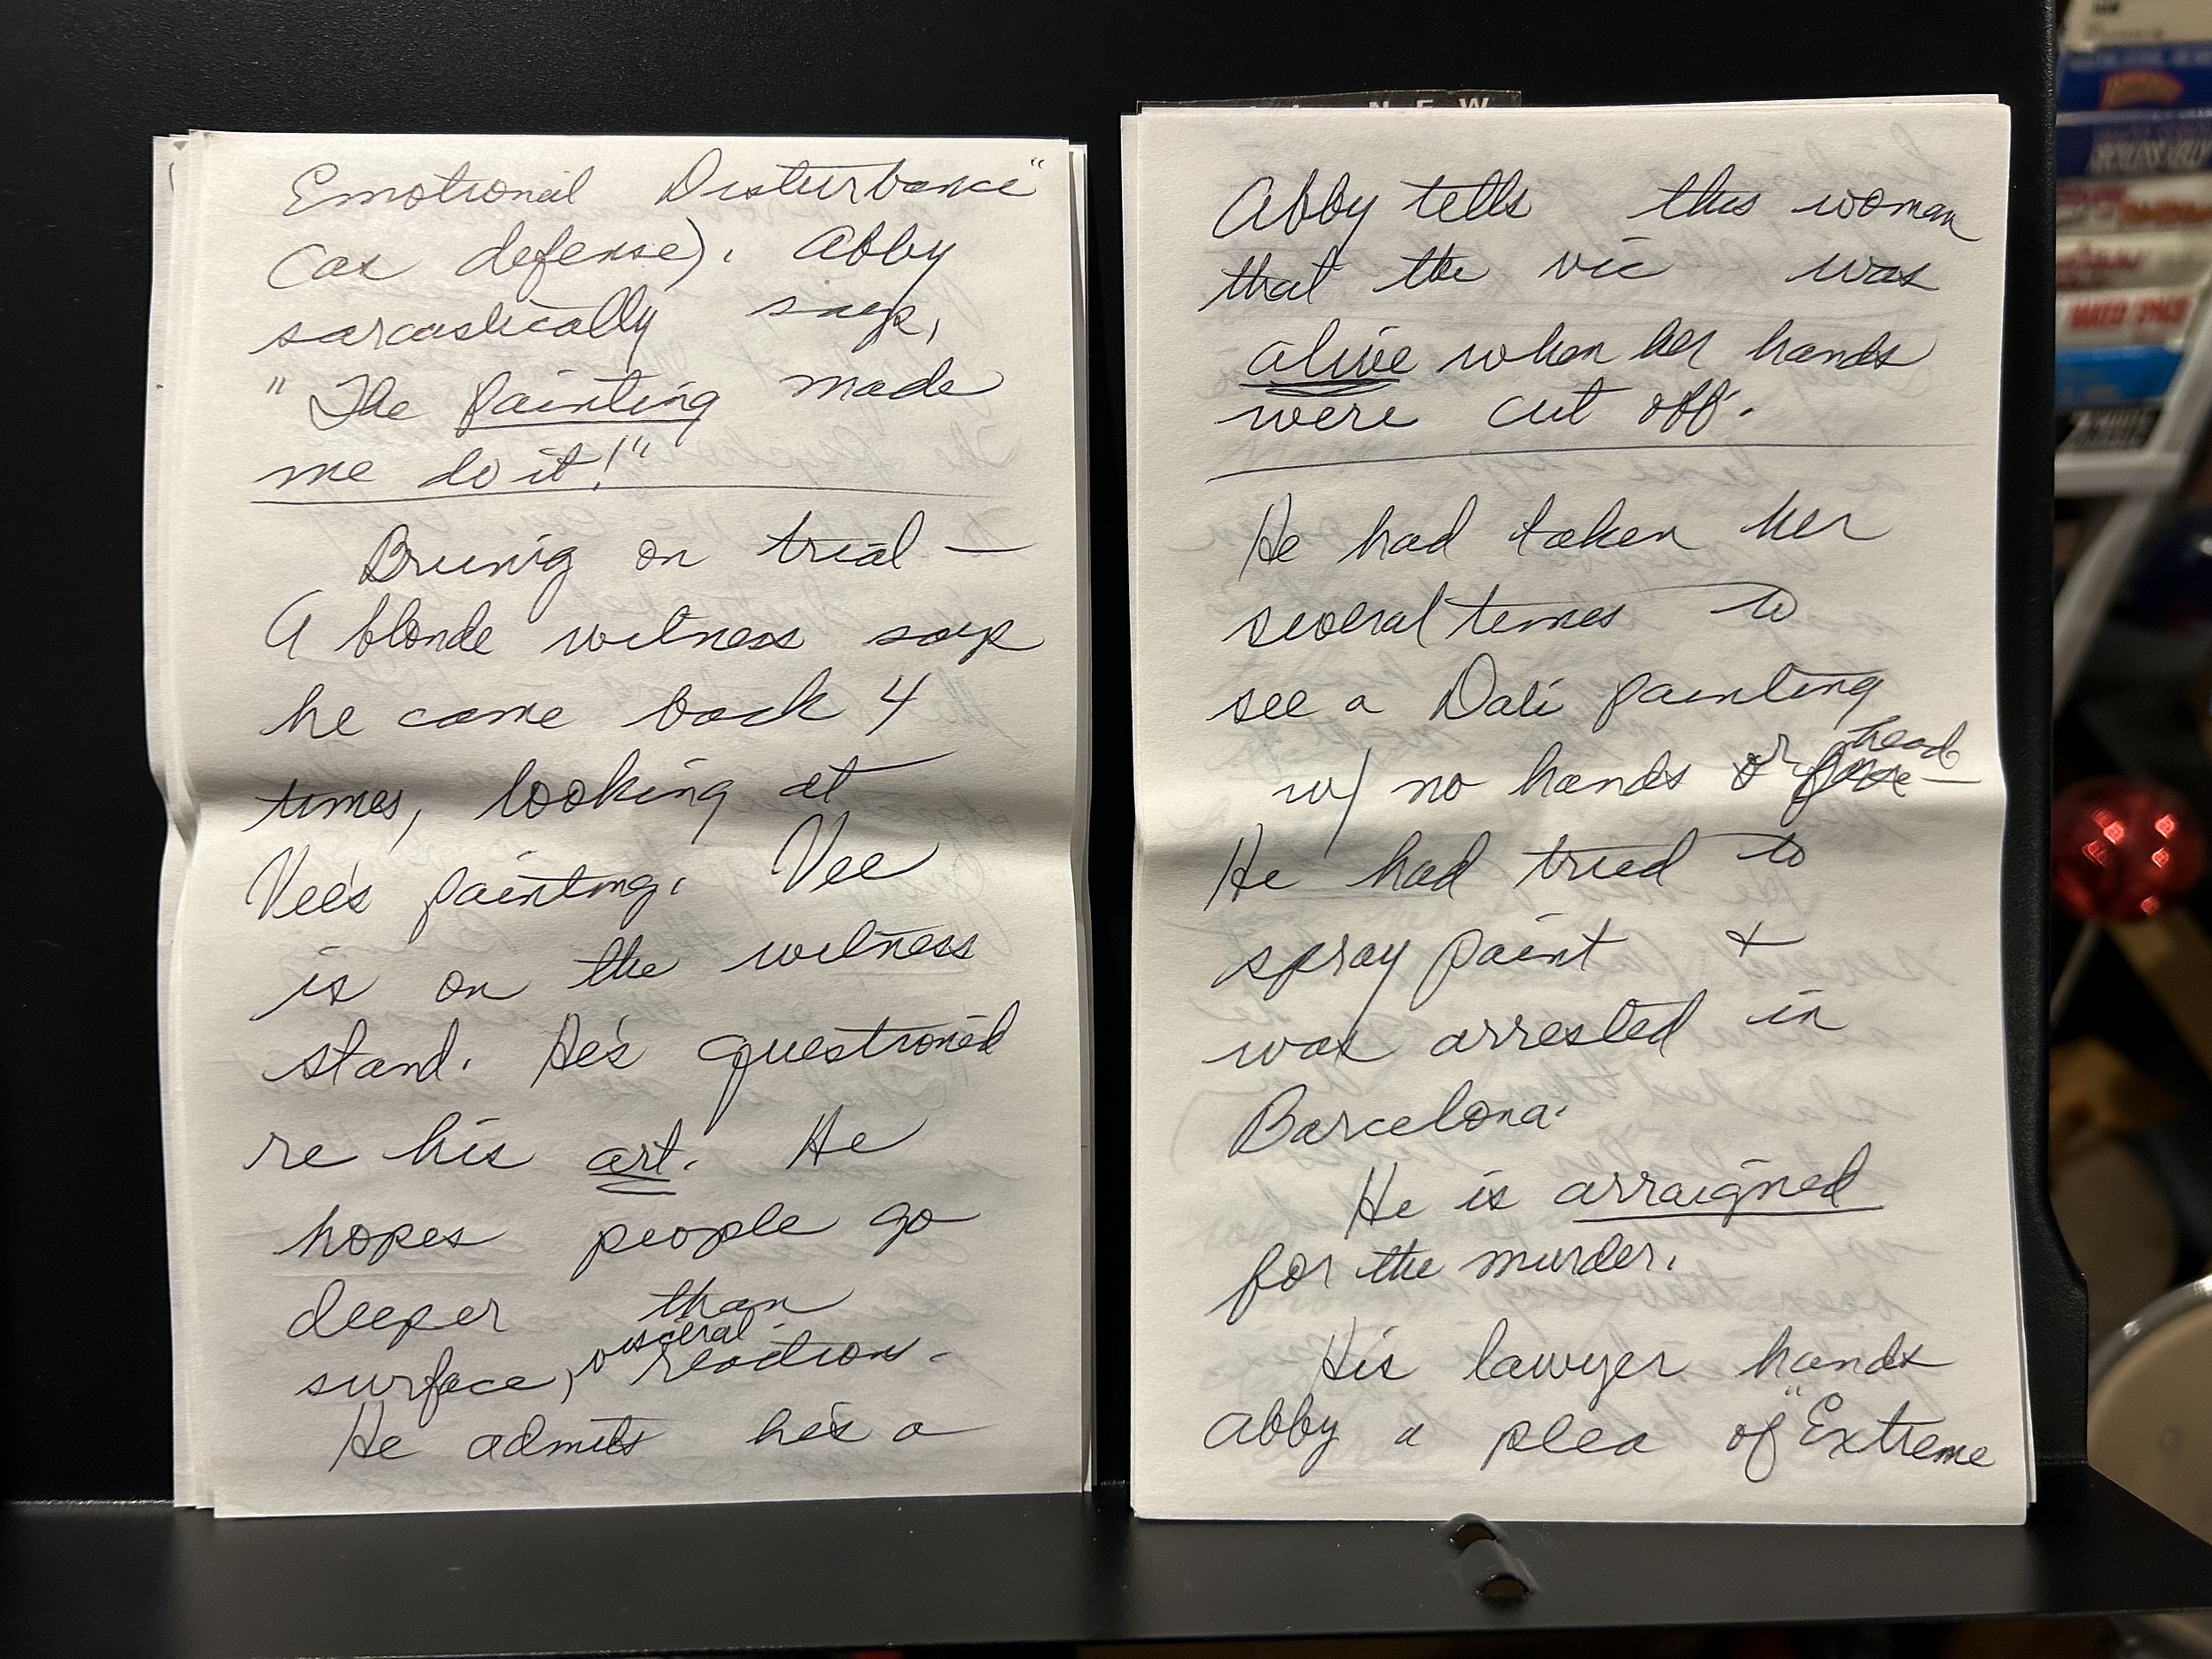 Emotional Disturbance"
(as defense). Abby
sarcastically says,
"The painting made
me do it!"
Brunig on trial —
A blonde witness says
he came back 4
times, looking at
Vee's painting. Vee
is on the witness
stand. He's questioned
re his art. He
hopes people go
deeper than
surface, visceral reactions.
He admits he's a
N E W
Abby tells this woman
that the vic was
alive when her hands
were cut off.
He had taken her
several times to
see a Dali painting
w/ no hands or head
He had tried to
spray paint &
was arrested in
Barcelona.
He is arraigned
for the murder.
His lawyer hands
Abby a plea of "Extreme